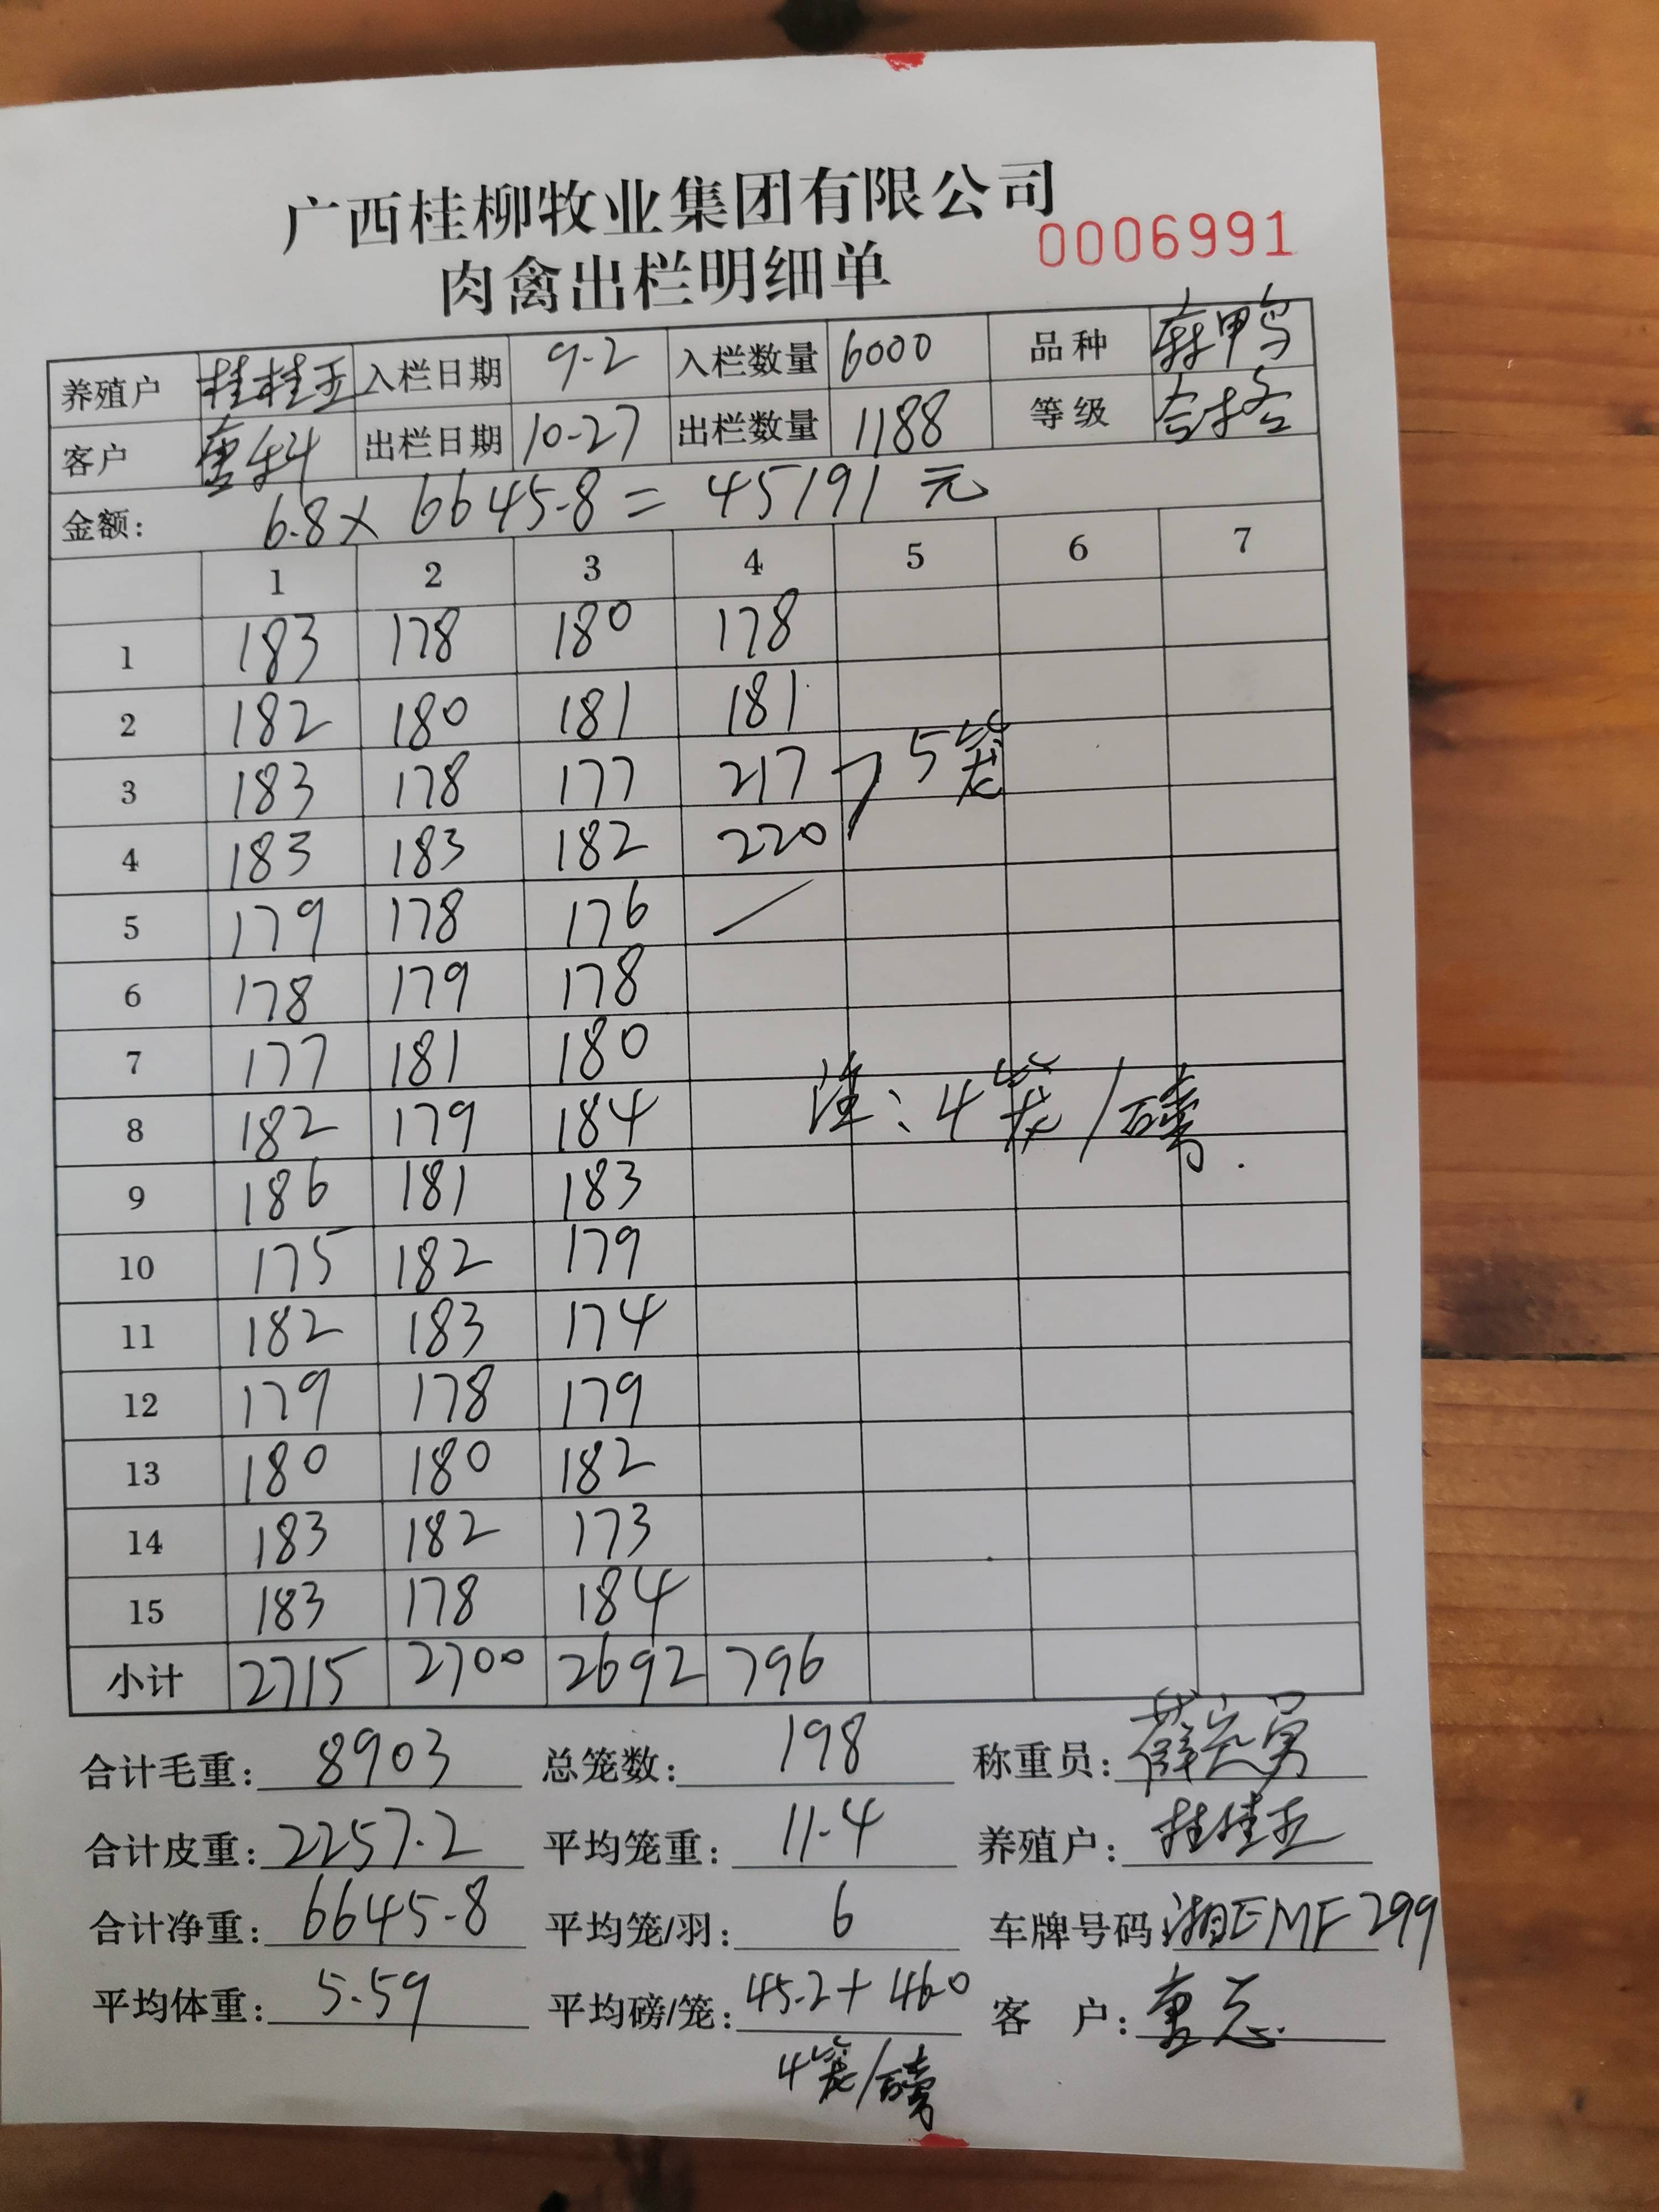 广西桂柳牧业集团有限公司
肉禽出栏明细单 0006991
养殖户 桂桂玉 入栏日期 9-2 入栏数量 6000 品种 麻鸭
客户 出栏日期 10-27 出栏数量 1188 等级 合格
金额: 6.8× 6645.8 = 45191 元
1 2 3 4 5 6 7
1 183 178 180 178
2 182 180 181 181
3 183 178 177 217 5笼
4 183 183 182 220
5 179 178 176 /
6 178 179 178
7 177 181 180
8 182 179 184 注:4笼/磅.
9 186 181 183
10 175 182 179
11 182 183 174
12 179 178 179
13 180 180 182
14 183 182 173
15 183 178 184
小计 2715 2700 2692 796
合计毛重: 8903 总笼数: 198 称重员:
合计皮重: 2257.2 平均笼重: 11.4 养殖户: 桂桂玉
合计净重: 6645.8 平均笼/羽: 6 车牌号码: 湘EMF299
平均体重: 5.59 平均磅/笼: 45.2+46.0 客 户:
4笼/磅